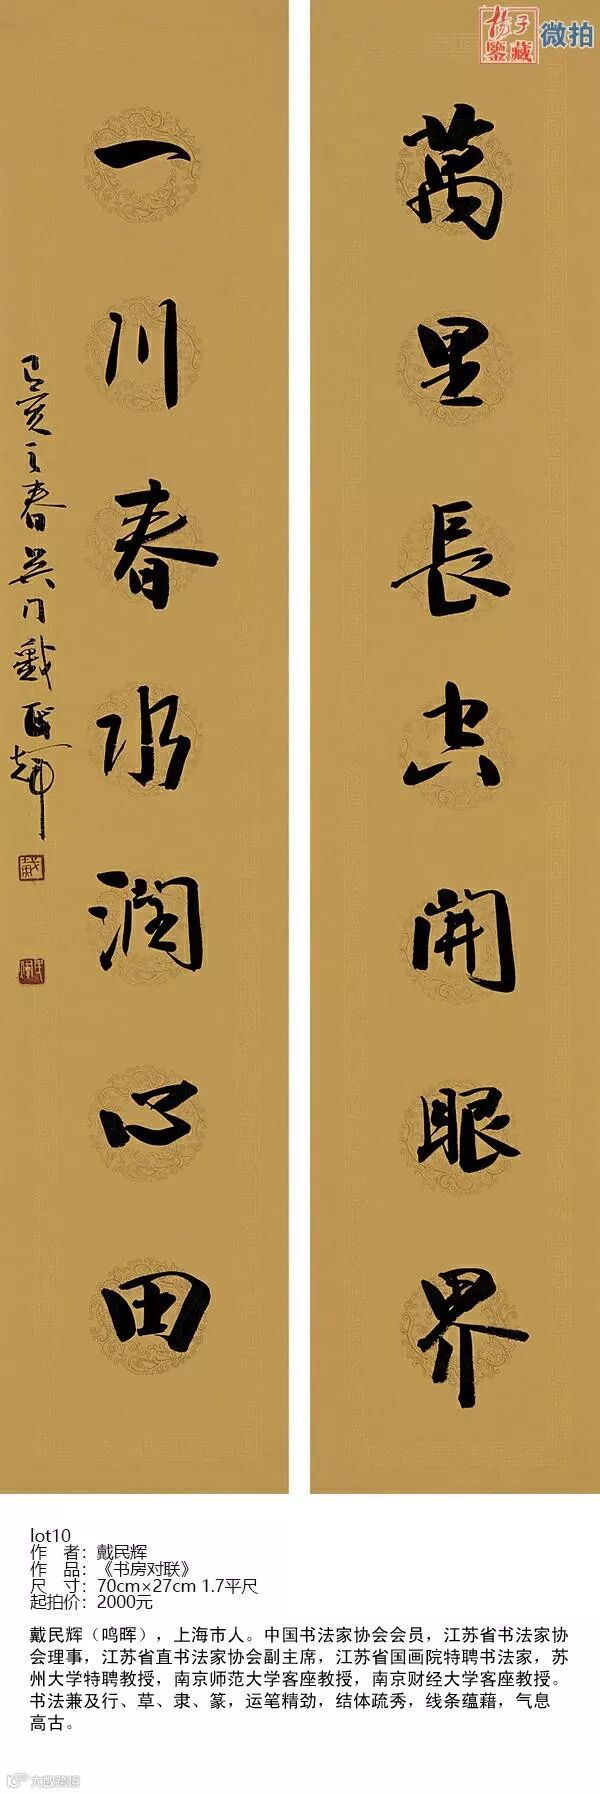 杨子鉴藏
微拍
萬里長空開眼界
一川春水潤心田
己亥之春吴门戴民辉
lot10
作 者：戴民辉
作 品：《书房对联》
尺 寸：70cm×27cm 1.7平尺
起拍价：2000元
戴民辉（鸣晖），上海市人。中国书法家协会会员，江苏省书法家协
会理事，江苏省直书法家协会副主席，江苏省国画院特聘书法家，苏
州大学特聘教授，南京师范大学客座教授，南京财经大学客座教授。
书法兼及行、草、隶、篆，运笔精劲，结体疏秀，线条蕴藉，气息
高古。
大数跨境